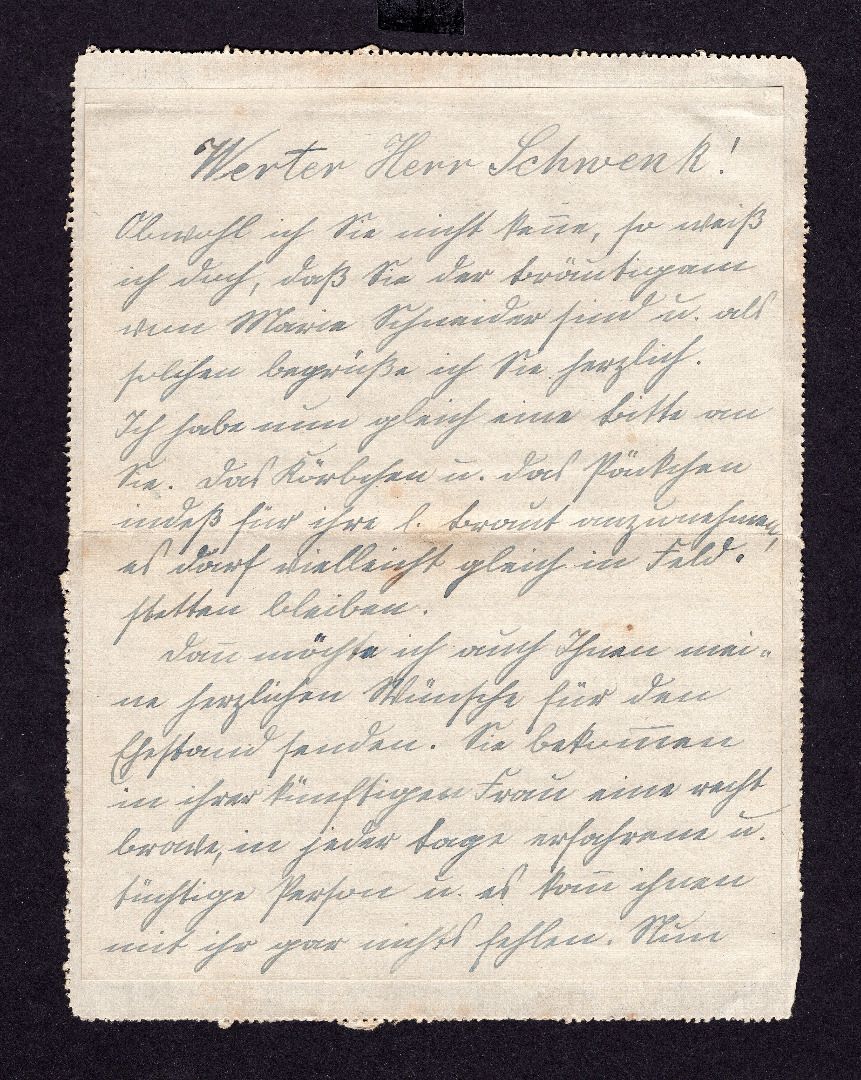 Werter Herr Schwenk!
Obwohl ich Sie nicht keñe, so weiß
ich doch, daß Sie der Bräutigam
von Marie Schneider sind u. als
solchen begrüße ich Sie herzlich.
Ich habe nun gleich eine Bitte an
Sie. Das Körbchen u. das Päckchen
indeß für ihre l. Braut anzunehmen,
es darf vielleicht gleich in Feld-
stetten bleiben.
Dañ möchte ich auch Ihnen mei-
ne herzlichen Wünsche für den
Ehestand senden. Sie bekom̄en
in ihrer künftigen Frau eine recht
brave, in jeder Lage erfahrene u.
tüchtige Person u. es kañ ihnen
mit ihr gar nichts fehlen. Nun